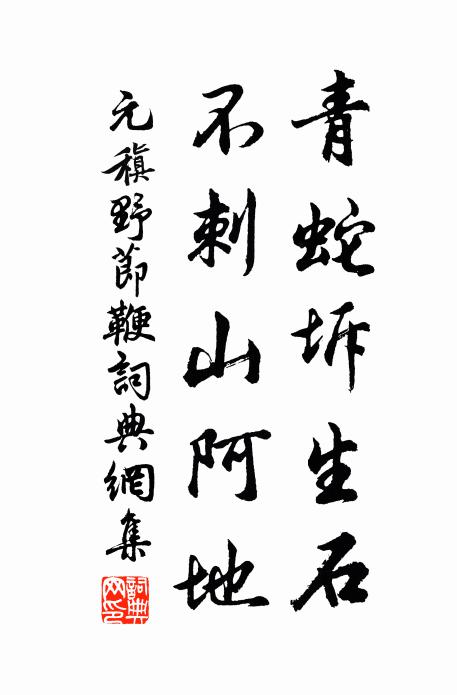 青蛇坼生石
不刺山阿地
元稹野節鞭詞典網集
詞典網印